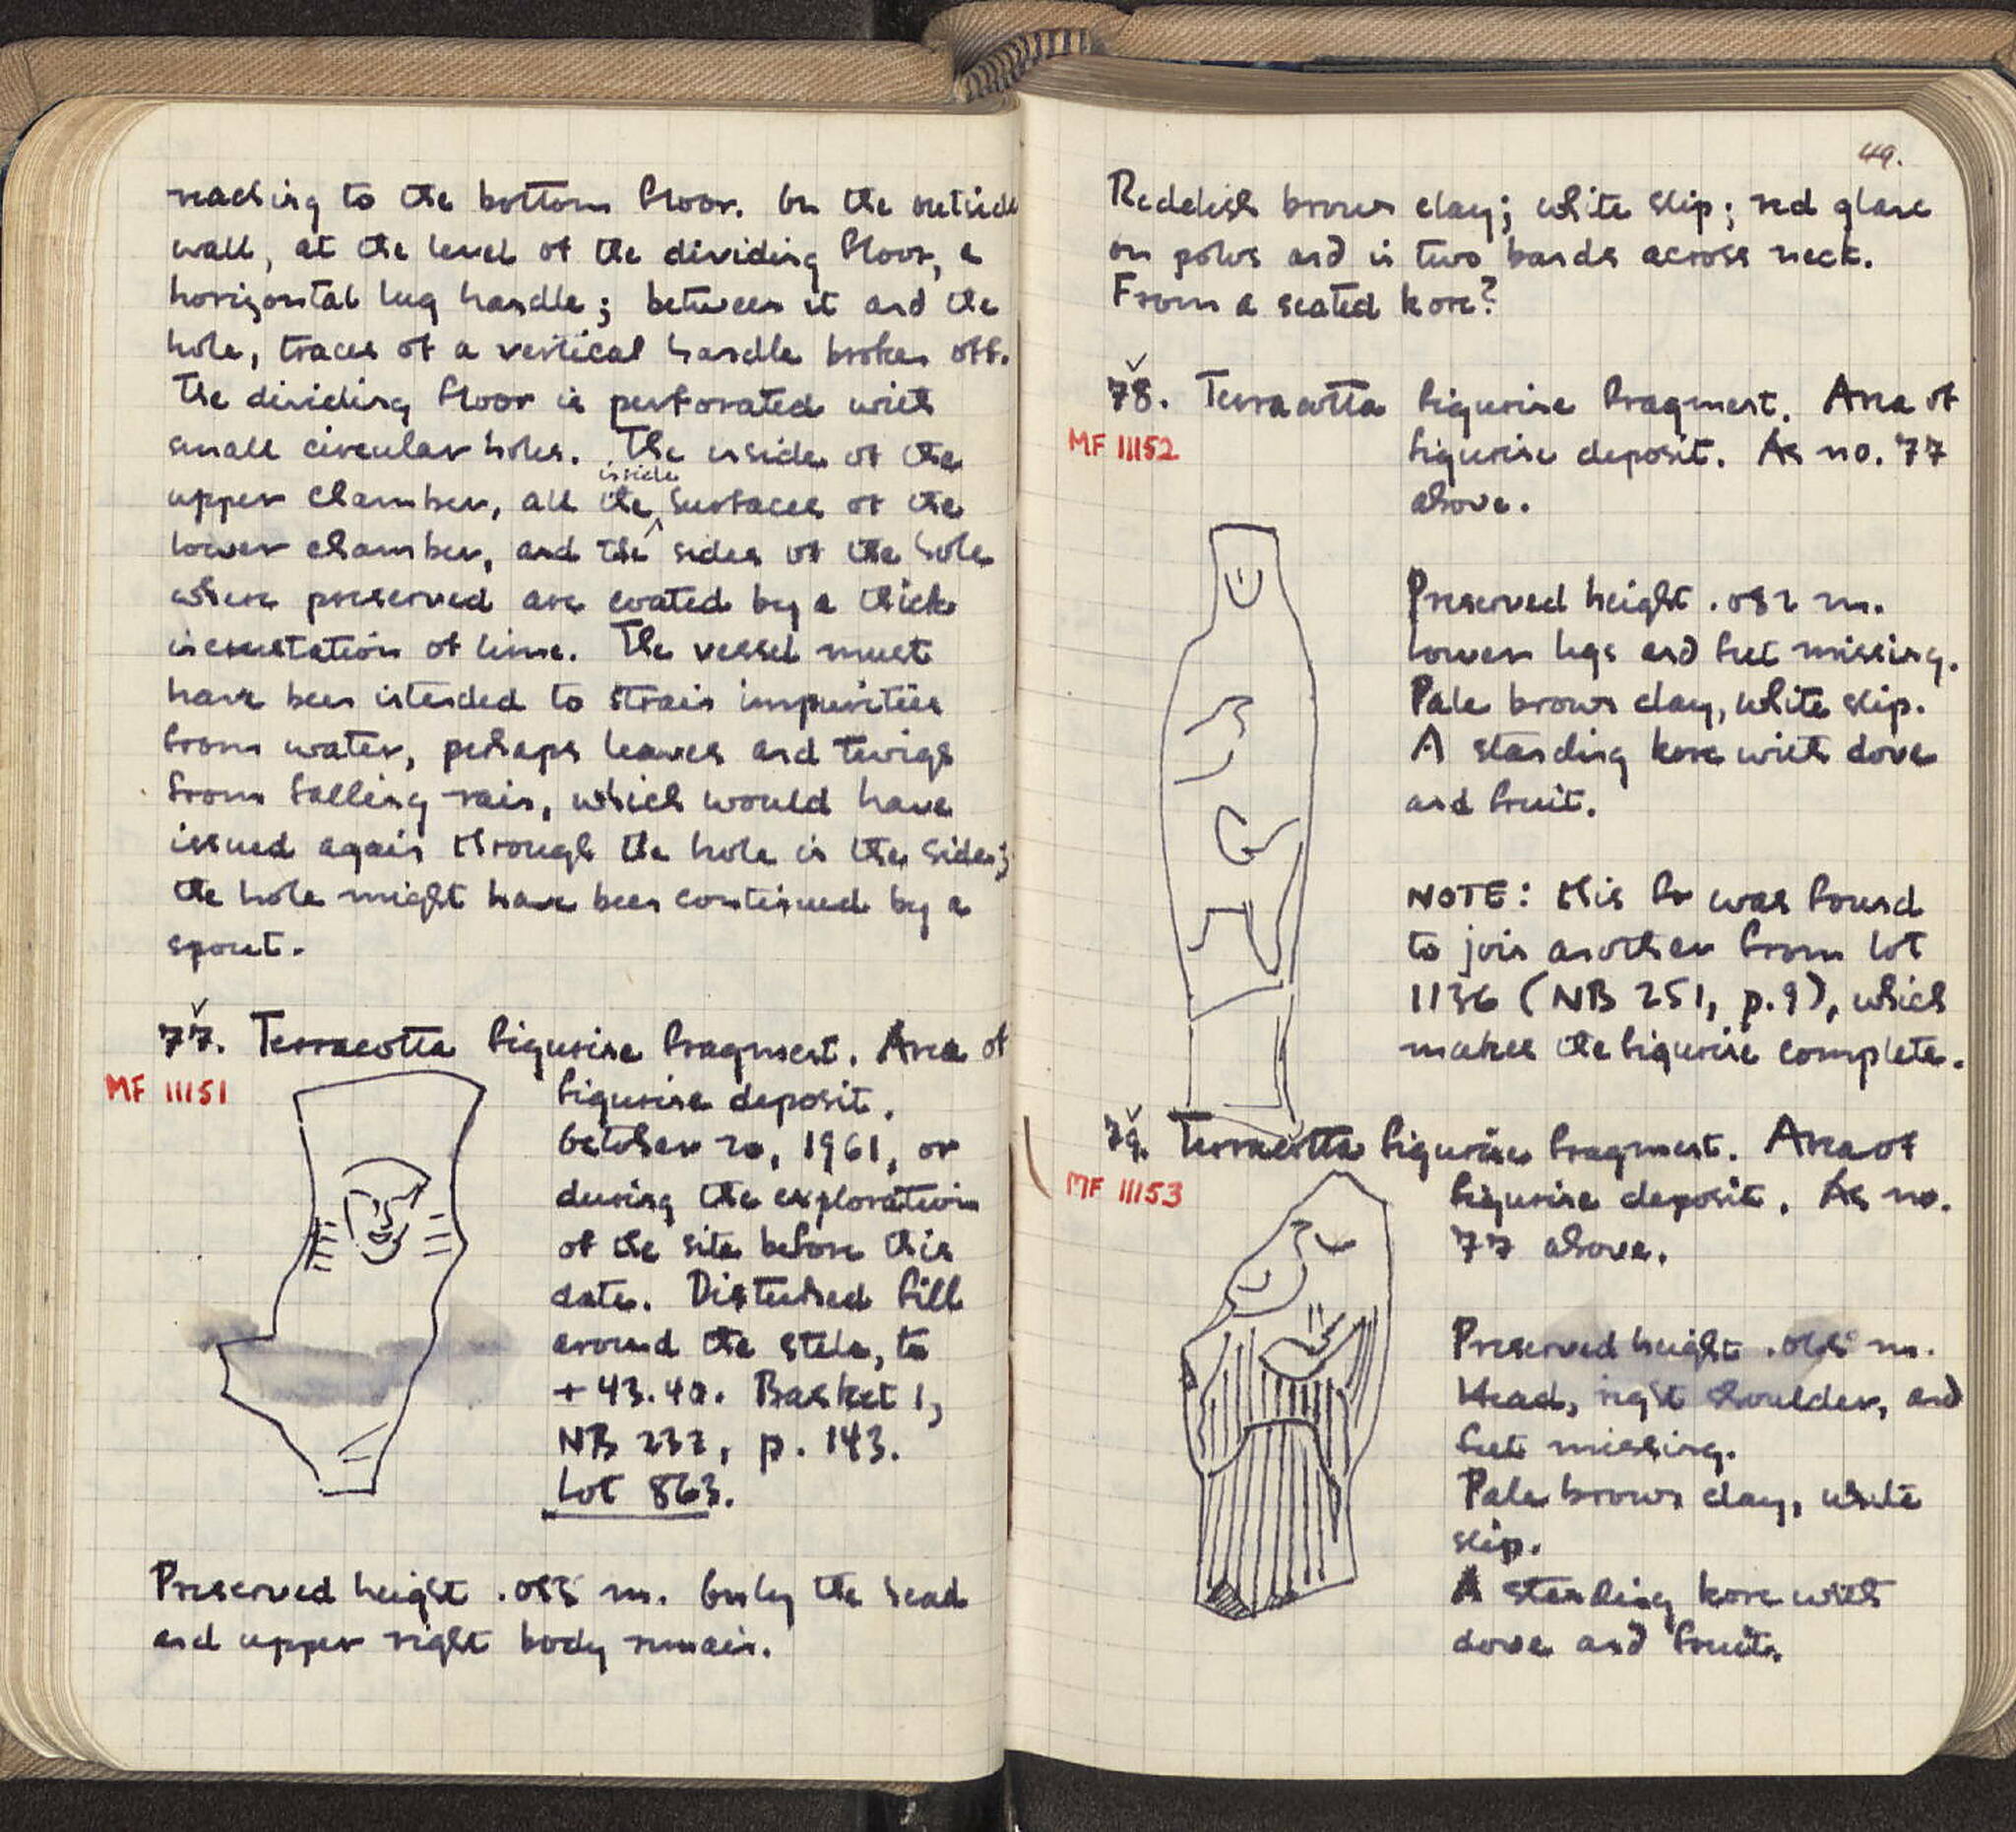 reaching to the bottom floor. On the outside
wall, at the level of the dividing floor, a
horizontal lug handle; between it and the
hole, traces of a vertical handle broken off.
The dividing floor is perforated with
small circular holes. The inside of the
upper chamber, all the inside surfaces of the
lower chamber, and the sides of the hole
where preserved are coated by a thick
incrustation of lime. The vessel must
have been intended to strain impurities
from water, perhaps leaves and twigs
from falling rain, which would have
issued again through the hole in the side;
the hole might have been continued by a
spout.
77. Terracotta figurine fragment. Area of
MF 11151
figurine deposit.
October 20, 1961, or
during the exploration
of the site before this
date. Disturbed fill
around the stele, to
+43.40. Basket 1,
NB 232, p. 143.
Lot 863.
Preserved height .055 m. Only the head
and upper right body remain.
49.
Reddish brown clay; white slip; red glaze
on polos and in two bands across neck.
From a seated kore?
78. Terracotta figurine fragment. Area of
MF 11152
figurine deposit. As no. 77
above.
Preserved height .082 m.
Lower legs and feet missing.
Pale brown clay, white slip.
A standing kore with dove
and fruit.
NOTE: this fr was found
to join another from lot
1136 (NB 251, p.9), which
makes the figurine complete.
79. Terracotta figurine fragment. Area of
MF 11153
figurine deposit. As no.
77 above.
Preserved height m.
Head, right shoulder, and
feet missing.
Pale brown clay, white
slip.
A standing kore with
dove and fruit.